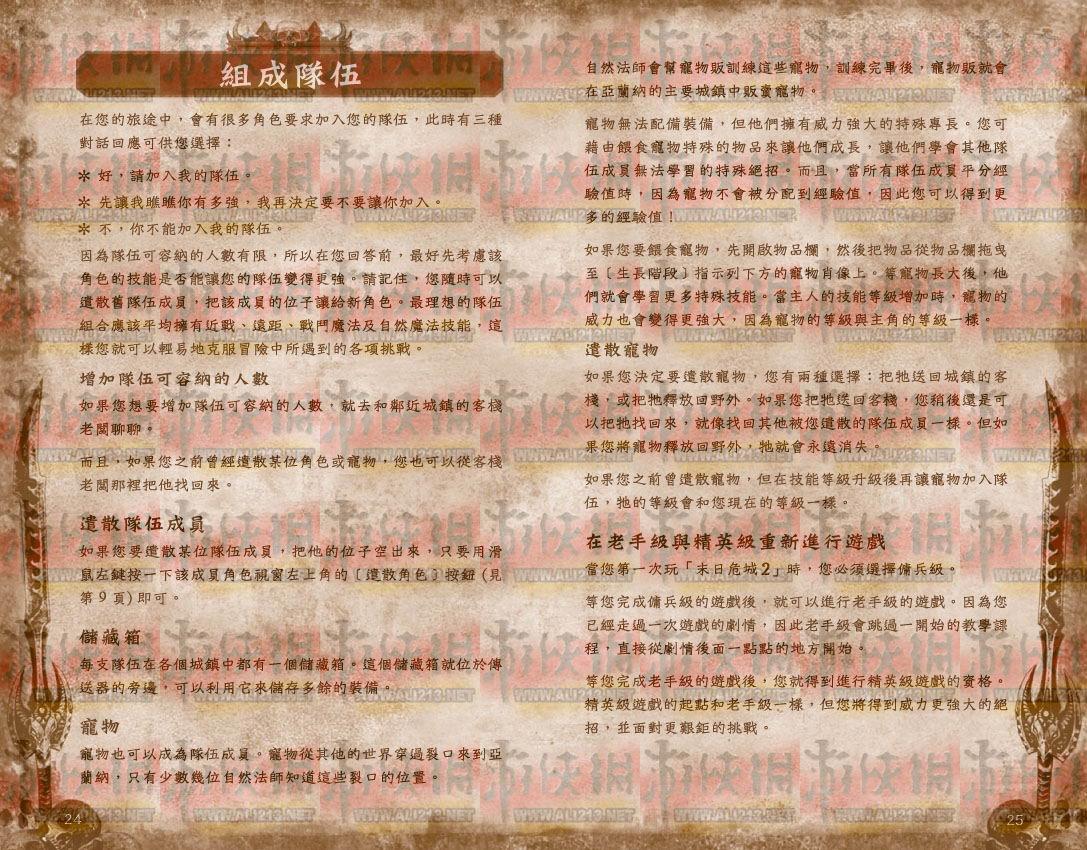 組成隊伍
在您的旅途中，會有很多角色要求加入您的隊伍，此時有三種
對話回應可供您選擇：
＊ 好，請加入我的隊伍。
＊ 先讓我瞧瞧你有多強，我再決定要不要讓你加入。
＊ 不，你不能加入我的隊伍。
因為隊伍可容納的人數有限，所以在您回答前，最好先考慮該
角色的技能是否能讓您的隊伍變得更強。請記住，您隨時可以
遣散舊隊伍成員，把該成員的位子讓給新角色。最理想的隊伍
組合應該平均擁有近戰、遠距、戰鬥魔法及自然魔法技能，這
樣您就可以輕易地克服冒險中所遇到的各項挑戰。
增加隊伍可容納的人數
如果您想要增加隊伍可容納的人數，就去和鄰近城鎮的客棧
老闆聊聊。
而且，如果您之前曾經遣散某位角色或寵物，您也可以從客棧
老闆那裡把他找回來。
遣散隊伍成員
如果您要遣散某位隊伍成員，把他的位子空出來，只要用滑
鼠左鍵按一下該成員角色視窗左上角的〔遣散角色〕按鈕 (見
第 9 頁) 即可。
儲藏箱
每支隊伍在各個城鎮中都有一個儲藏箱。這個儲藏箱就位於傳
送器的旁邊，可以利用它來儲存多餘的裝備。
寵物
寵物也可以成為隊伍成員。寵物從其他的世界穿過裂口來到亞
蘭納，只有少數幾位自然法師知道這些裂口的位置。
24
自然法師會幫寵物販訓練這些寵物，訓練完畢後，寵物販就會
在亞蘭納的主要城鎮中販賣寵物。
寵物無法配備裝備，但他們擁有威力強大的特殊專長。您可
藉由餵食寵物特殊的物品來讓他們成長，讓他們學會其他隊
伍成員無法學習的特殊絕招。而且，當所有隊伍成員平分經
驗值時，因為寵物不會被分配到經驗值，因此您可以得到更
多的經驗值！
如果您要餵食寵物，先開啟物品欄，然後把物品從物品欄拖曳
至〔生長階段〕指示列下方的寵物肖像上。等寵物長大後，他
們就會學習更多特殊技能。當主人的技能等級增加時，寵物的
威力也會變得更強大，因為寵物的等級與主角的等級一樣。
遣散寵物
如果您決定要遣散寵物，您有兩種選擇：把牠送回城鎮的客
棧，或把牠釋放回野外。如果您把牠送回客棧，您稍後還是可
以把牠找回來，就像找回其他被您遣散的隊伍成員一樣。但如
果您將寵物釋放回野外，牠就會永遠消失。
如果您之前曾遣散寵物，但在技能等級升級後再讓寵物加入隊
伍，牠的等級會和您現在的等級一樣。
在老手級與精英級重新進行遊戲
當您第一次玩「末日危城2」時，您必須選擇傭兵級。
等您完成傭兵級的遊戲後，就可以進行老手級的遊戲。因為您
已經走過一次遊戲的劇情，因此老手級會跳過一開始的教學課
程，直接從劇情後面一點點的地方開始。
等您完成老手級的遊戲後，您就得到進行精英級遊戲的資格。
精英級遊戲的起點和老手級一樣，但您將得到威力更強大的絕
招，並面對更艱鉅的挑戰。
25
游俠網
WWW.ALI213.NET